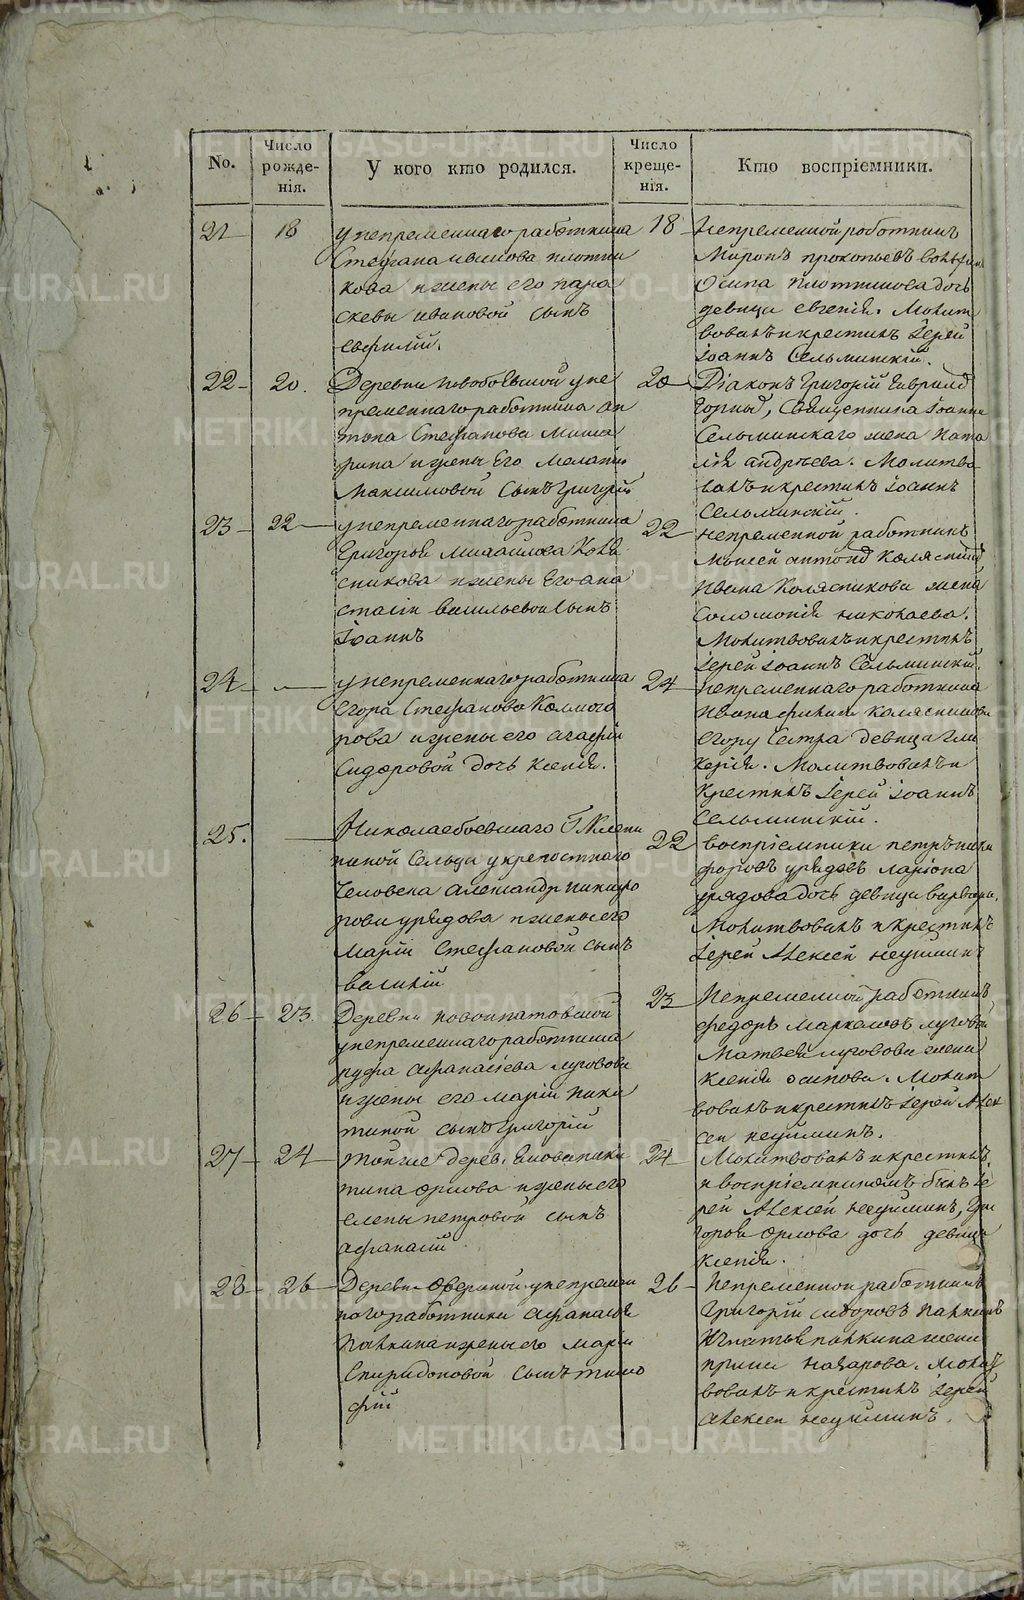 No.
Число рожде-нія.
У кого кто родился.
Число креще-нія.
Кто воспріемники.
21 18 18
унепременнаго работника
Стефана иванова плотни
кова ижены его пара
скевы ивановой сынъ
евфимій.
Непременной роботникъ
Миронъ прокопьевъ
Осипа Плотникова дочь
девица евгенія. Молит
вовалъ и крестилъ Іерей
Іоаннъ Сельминскій.
22 20. 20
Деревни новобоевской уне
пременнаго работника ан
тона Стефанова
ижены Его Мелании
Максимовой Сынъ Григорій
Діаконъ Григорій Гаврилъ
Горныхъ, Священника Іоанна
Сельминскаго жена Ната
лія андреева. Молитво
валъ и крестилъ Іоаннъ
Сельминскій.
23 22 22
унепременнаго работника
Григорья Михаилова Коля
сникова ижены Его ана
стасіи васильевой Сынъ
Іоаннъ
непременной работникъ
Моисей антоновъ Колясниковъ
Ивана Колясникова жена
Соломонія николаева.
Молитвовалъ и крестилъ
Іерей Іоаннъ Сельминскій.
24 24
унепременнаго работника
Егора Стефанова Колмого
рова ижены его агафіи
Сидоровой дочь Ксенія.
непременнаго работника
Ивана Колясникова
Егору Сестра девица Гли
керія. Молитвовалъ и
Крестилъ Іерей Іоаннъ
Сельминскій.
25. 22
Николаебоевскаго
Сельца укрепостнаго
Человека александра никифо
рова урядова ижены его
Маріи Стефановой сынъ
василій
воспріемники петръ ники
форовъ урядовъ ларіона
урядова дочь девица варвара.
Молитвовалъ и крестилъ
Іерей Алексей неуйминъ
26 23. 23
Деревни новоипатовской
унепременнаго работника
руфа афанасіева луговова
ижены его маріи ники
тиной сынъ Григорій
Непременной работникъ
федоръ Маркеловъ луговой
Матвея луговова жена
Ксенія осипова. Молит
вовалъ и крестилъ Іерей Алек
сей неуйминъ.
27 24 24
тойже дерев. ники
тина орлова ижены его
елены петровой сынъ
афанасій
Молитвовалъ и крестилъ
и воспріемникомъ былъ Іе
рей Алексей неуйминъ, Гри
горья орлова дочь девица
ксенія.
28 26 26
Деревни озерской унепремен
ного работника афанасья
Панкина ижены его маріи
Спиридоновой Сынъ тимо
фій
Непременной работникъ
Григорій сидоровъ Панкинъ
Игнатья панкина жена
ирина назарова. Молит
вовалъ и крестилъ Іерей
алексей неуйминъ.
METRIKI.GASO-URAL.RU